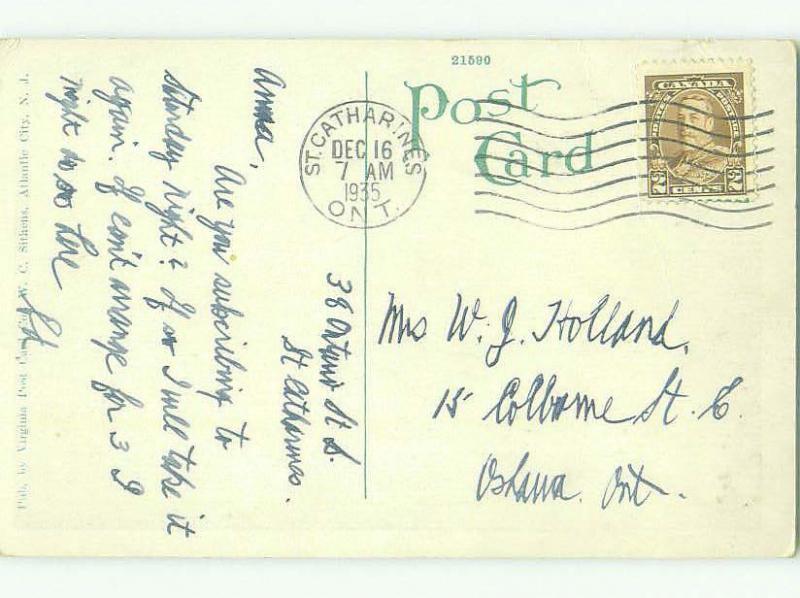 21590
Post
Card
ST. CATHARINES
DEC 16
7 AM
1935
ONT.
CANADA
POSTES POSTAGE
2 CENTS 2
38 Ontario St S.
St Catharines.
Anna,
Are you subscribing to
Saturday Night? If so I will take it
again. If can't arrange for 3 I
might do so here
Ed
Mrs W. J. Holland,
15 Colborne St. E.
Oshawa. Ont.
Pub. by Virginia Post Card W. C. Sithens, Atlantic City, N. J.